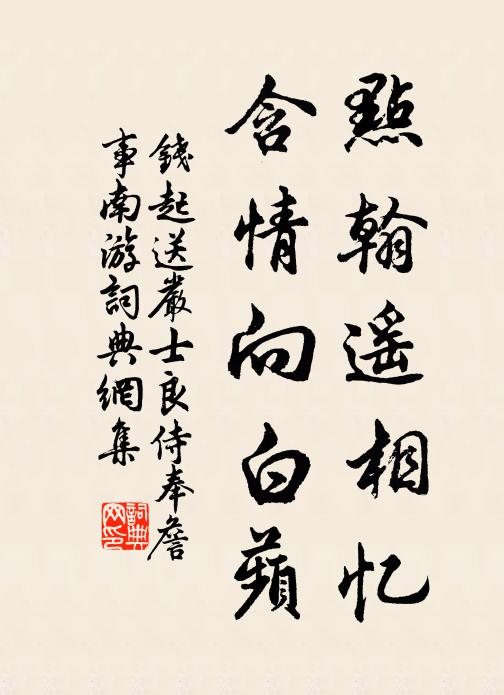 點翰遥相忆
含情向白蘋
錢起送嚴士良侍奉詹
事南游詞典網集
詞典
网印